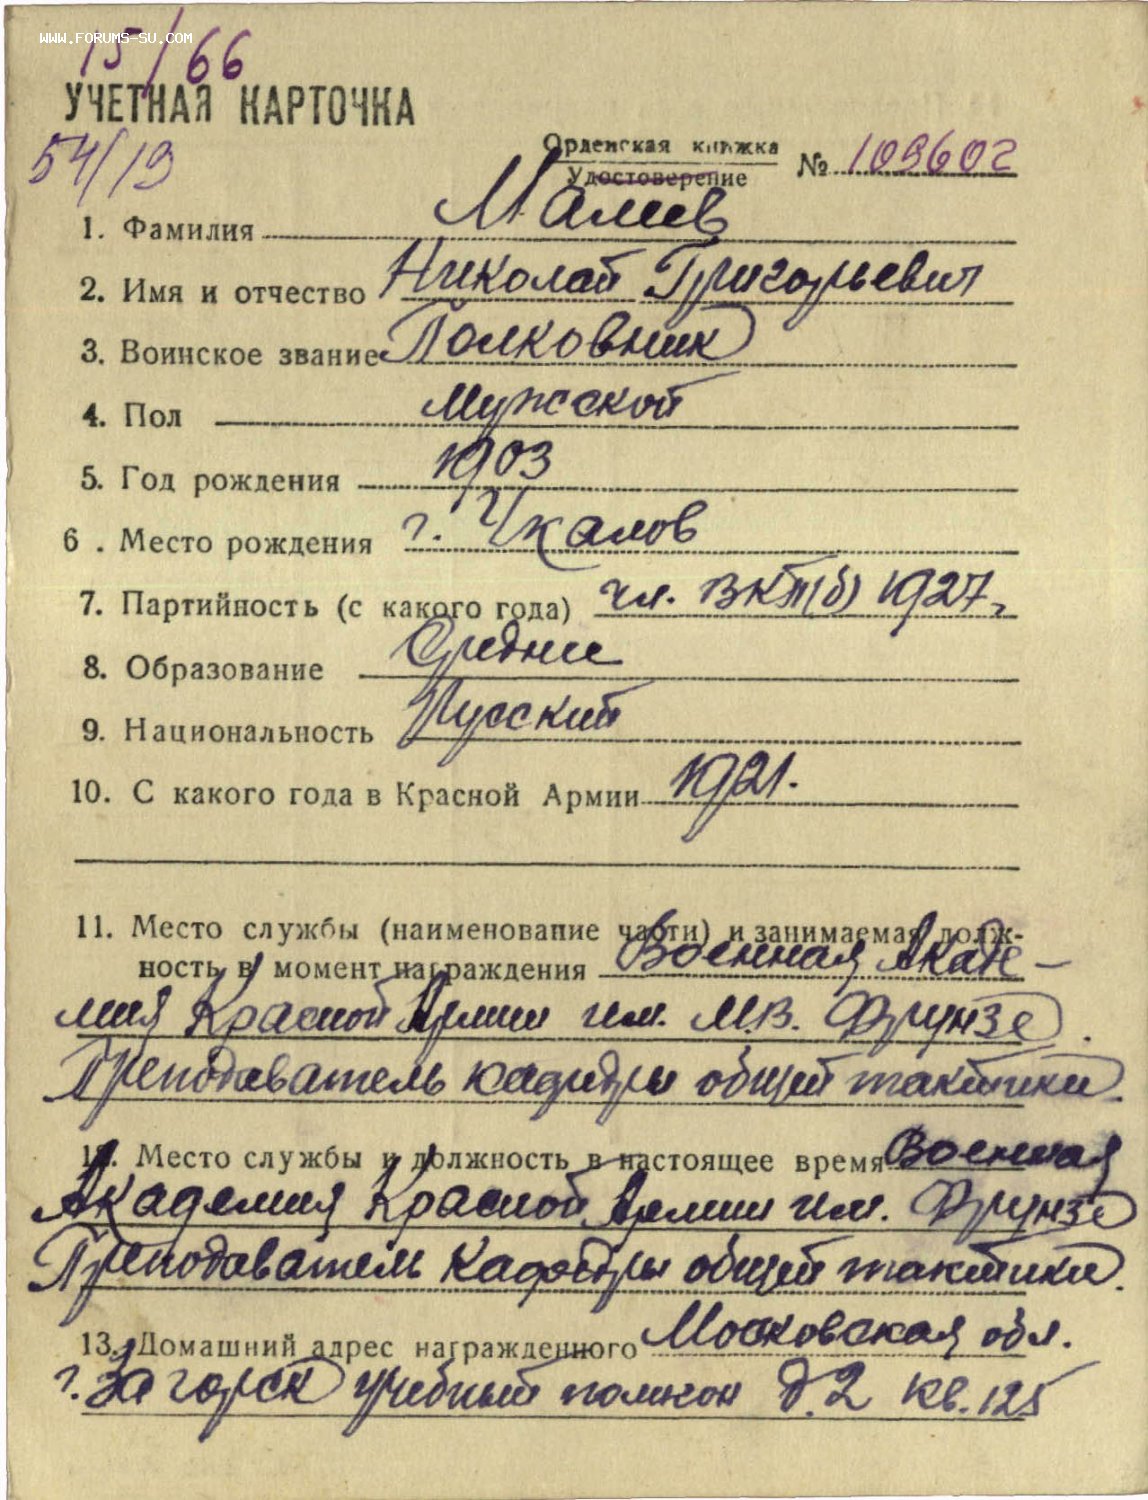 WWW.FORUMS-SU.COM
15/66
УЧЕТНАЯ КАРТОЧКА
54/19
Орденская книжка
Удостоверение № 109602
1. Фамилия Малиев
2. Имя и отчество Николай Григорьевич
3. Воинское звание Полковник
4. Пол Мужской
5. Год рождения 1903
6. Место рождения г. Чкалов
7. Партийность (с какого года) чл. ВКП(б) 1927г.
8. Образование Среднее
9. Национальность Русский
10. С какого года в Красной Армии 1921.
11. Место службы (наименование части) и занимаемая долж-
ность в момент награждения Военная Акаде-
мия Красной Армии им. М.В. Фрунзе.
Преподаватель кафедры общей тактики.
12. Место службы и должность в настоящее время Военная
Академия Красной Армии им. Фрунзе
Преподаватель кафедры общей тактики.
13. Домашний адрес награжденного Московская обл.
г. Загорск учебный полигон д. 2 кв. 125